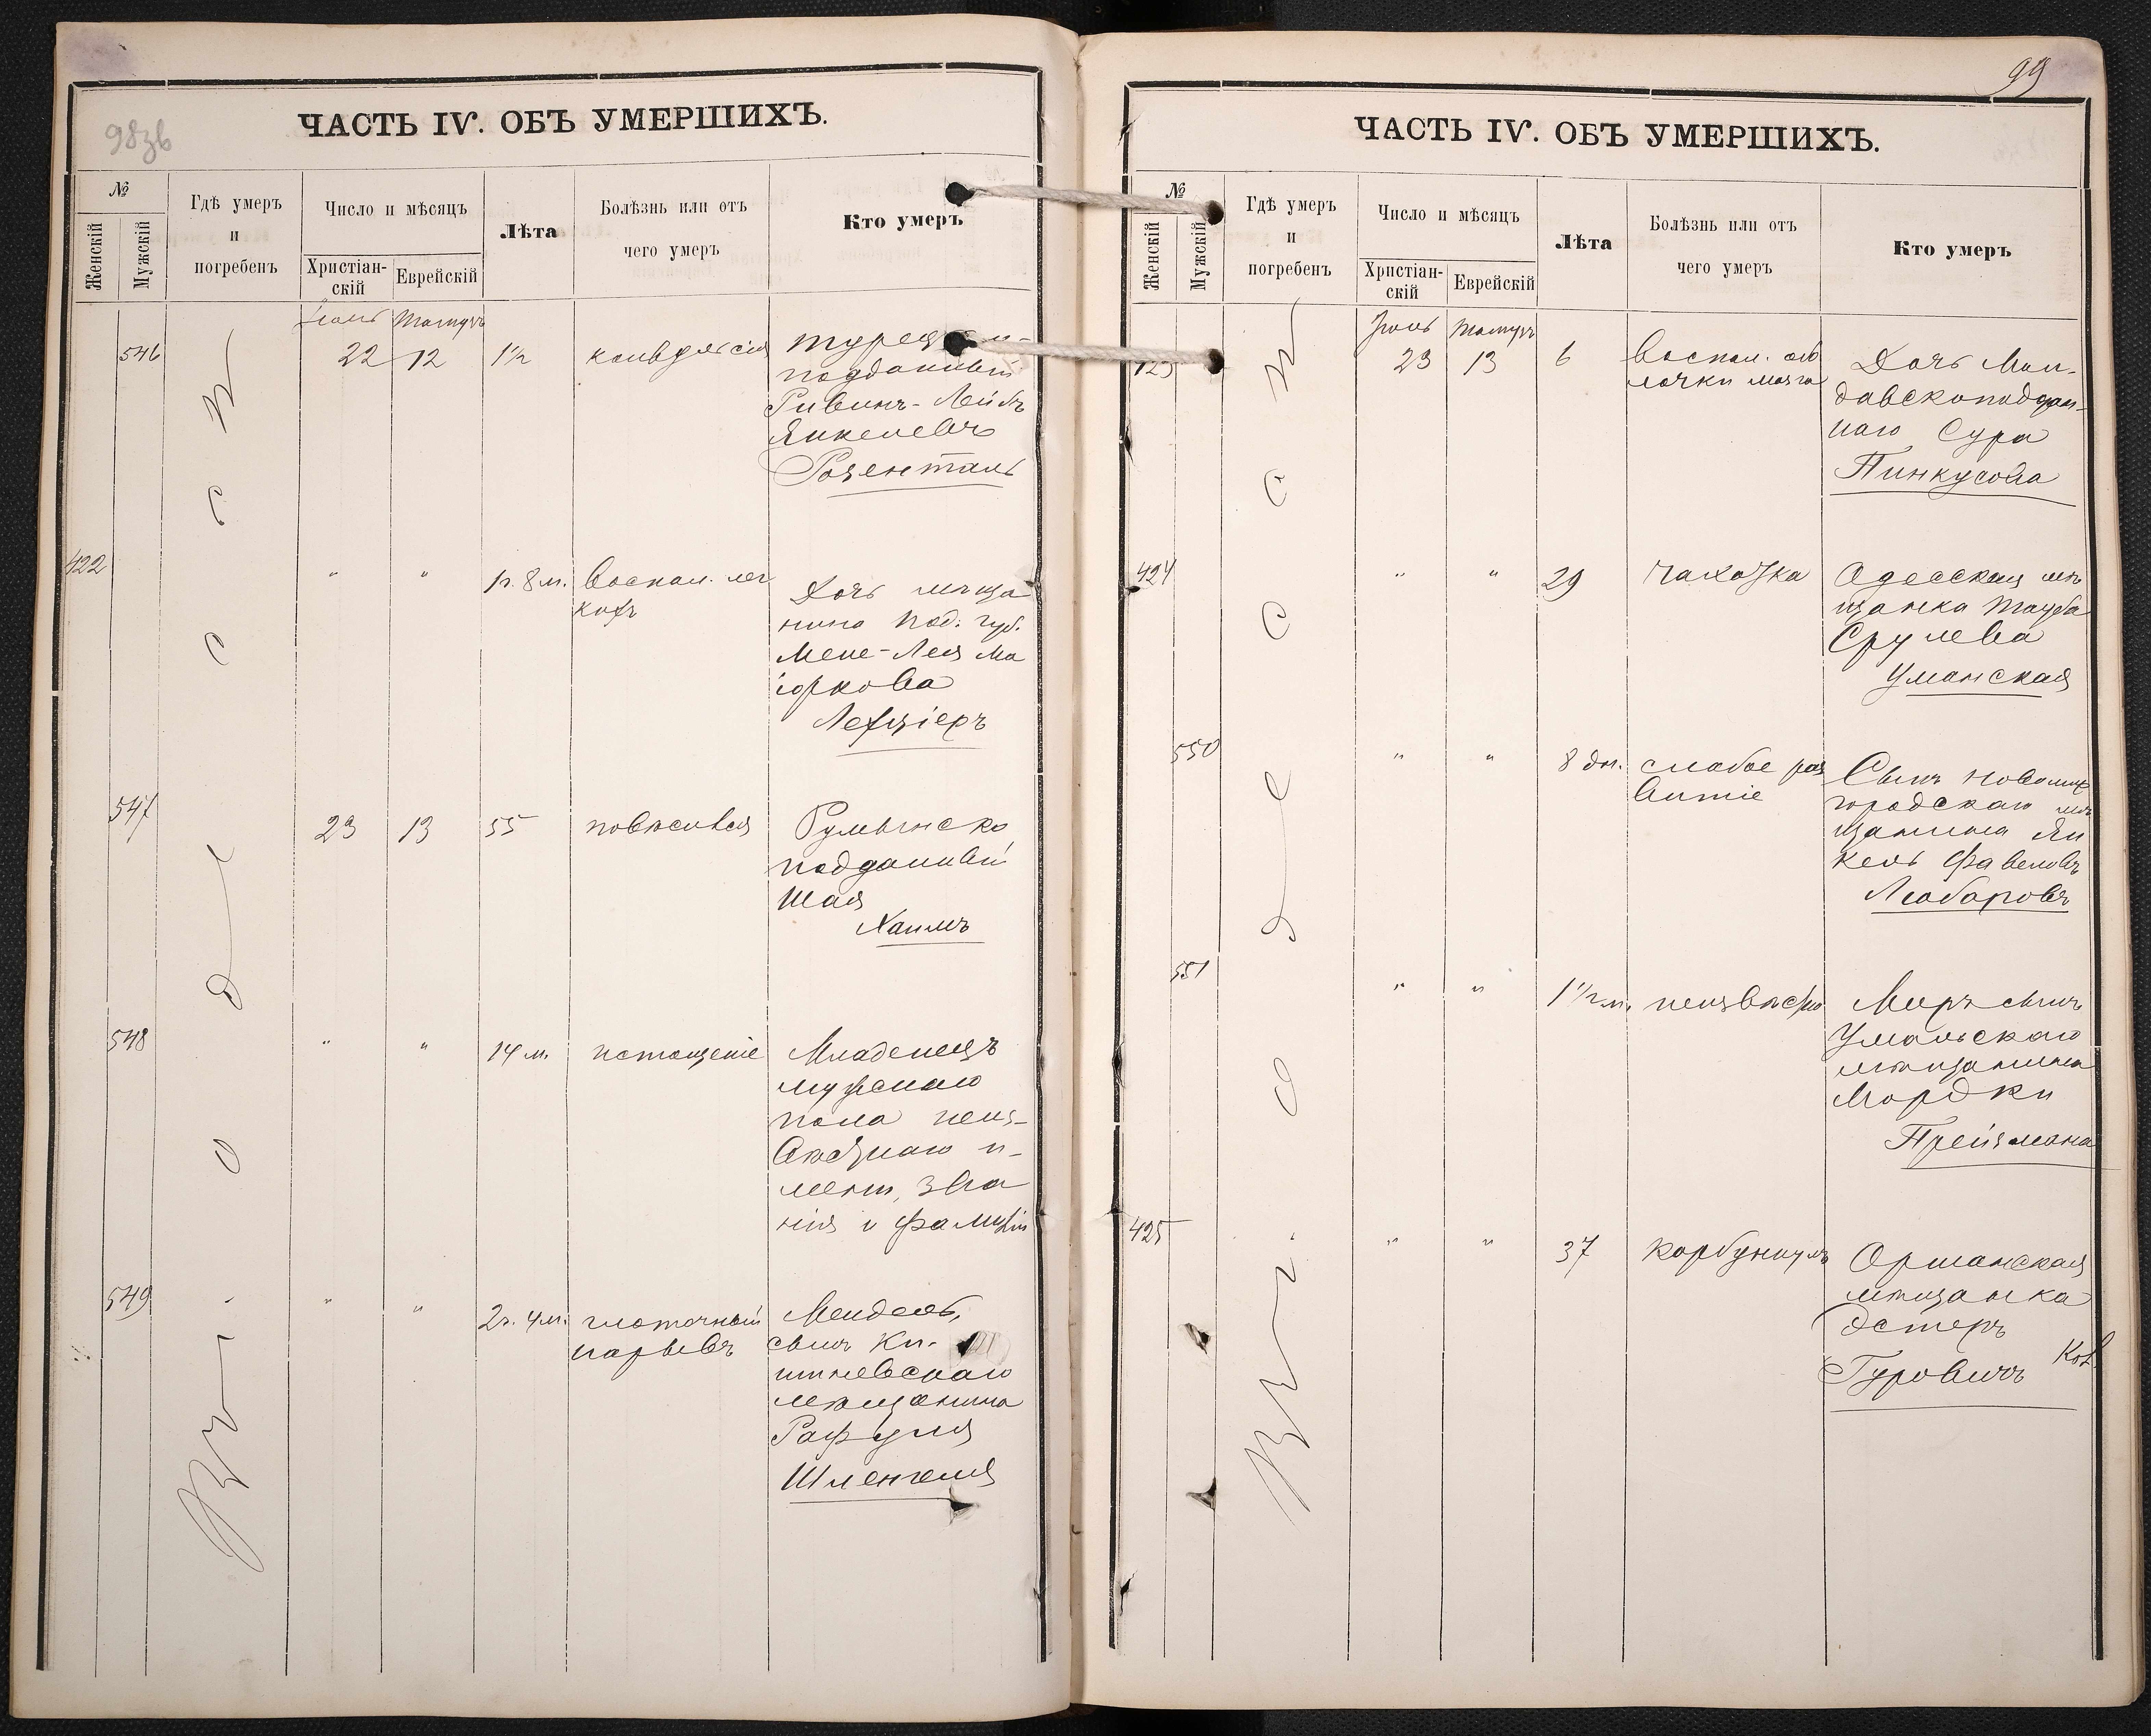 98зв
ЧАСТЬ IV. ОБЪ УМЕРШИХЪ.
№
Женскій
Мужскій
Гдѣ умеръ
и
погребенъ
Число и мѣсяцъ
Христіан-
скій
Еврейскій
Лѣта
Болѣзнь или отъ
чего умеръ
Кто умеръ
Въ г. Одессѣ
Тамузъ
546
22
12
1½
конвульсія
подданный
Ривинъ-Лейбъ
Янкелевъ
Розенталь
422
"
"
1г. 8м.
Воспал. лег
кихъ
Дочь мѣща
нина Под. губ.
Мене-Лея Ма
іоркова
547
23
13
55
повѣсився
Румынско
подданный
Шая
Хаимъ
548
"
"
14 м.
истощеніе
Младенецъ
мужскаго
пола неиз-
вѣстнаго и-
мени, зва
нія и фамиліи
549
"
"
2г. 4м.
глоточный
нарывъ
Мендель,
сынъ Ки-
шиневскаго
мѣщанина
Рафуля
Шленгеля
99
ЧАСТЬ IV. ОБЪ УМЕРШИХЪ.
№
Женскій
Мужскій
Гдѣ умеръ
и
погребенъ
Число и мѣсяцъ
Христіан-
скій
Еврейскій
Лѣта
Болѣзнь или отъ
чего умеръ
Кто умеръ
Въ г. Одессѣ
Тамузъ
423
23
13
6
Воспал. обо
лочки мозга
Дочь Мол-
давскоподдан-
наго Сура
Пинкусова
424
"
"
29
Чахотка
Одесская мѣ
щанка Тауба
Срулева
Уманская
550
"
"
8 дн.
слабое раз
витіе
Сынъ Новомир
городскаго мѣ
щанина Ян
кель Фавелевъ
Любаровъ
551
"
"
1½ м.
неизвѣстно
Меръ сынъ
Уманьскаго
мѣщанина
Мордки
Прейзмана
425
"
"
37
Карбункулъ
Оршанская
мѣщанка
Эстеръ
Гуровичъ